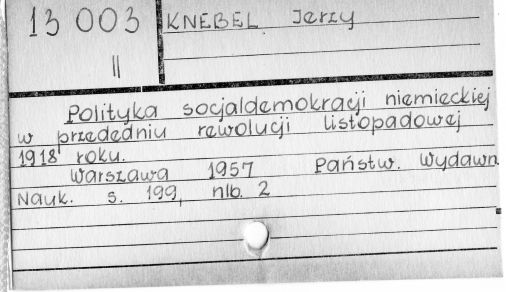 13 003
II
KNEBEL Jerzy
Polityka socjaldemokracji niemieckiej
w przededniu rewolucji listopadowej
1918 roku.
Warszawa 1957 Państw. Wydawn.
Nauk. s. 199, nlb. 2